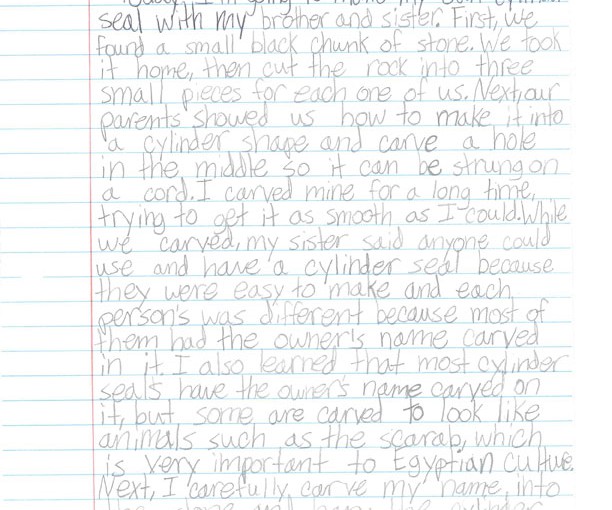 seal with my brother and sister. First, we
found a small black chunk of stone. We took
it home, then cut the rock into three
small pieces for each one of us. Next, our
parents showed us how to make it into
a cylinder shape and carve a hole
in the middle so it can be strung on
a cord. I carved mine for a long time,
trying to get it as smooth as I could. While
we carved, my sister said anyone could
use and have a cylinder seal because
they were easy to make and each
person's was different because most of
them had the owner's name carved
in it. I also learned that most cylinder
seals have the owner's name carved on
it, but some are carved to look like
animals such as the scarab, which
is very important to Egyptian culture.
Next, I carefully carve my name, into